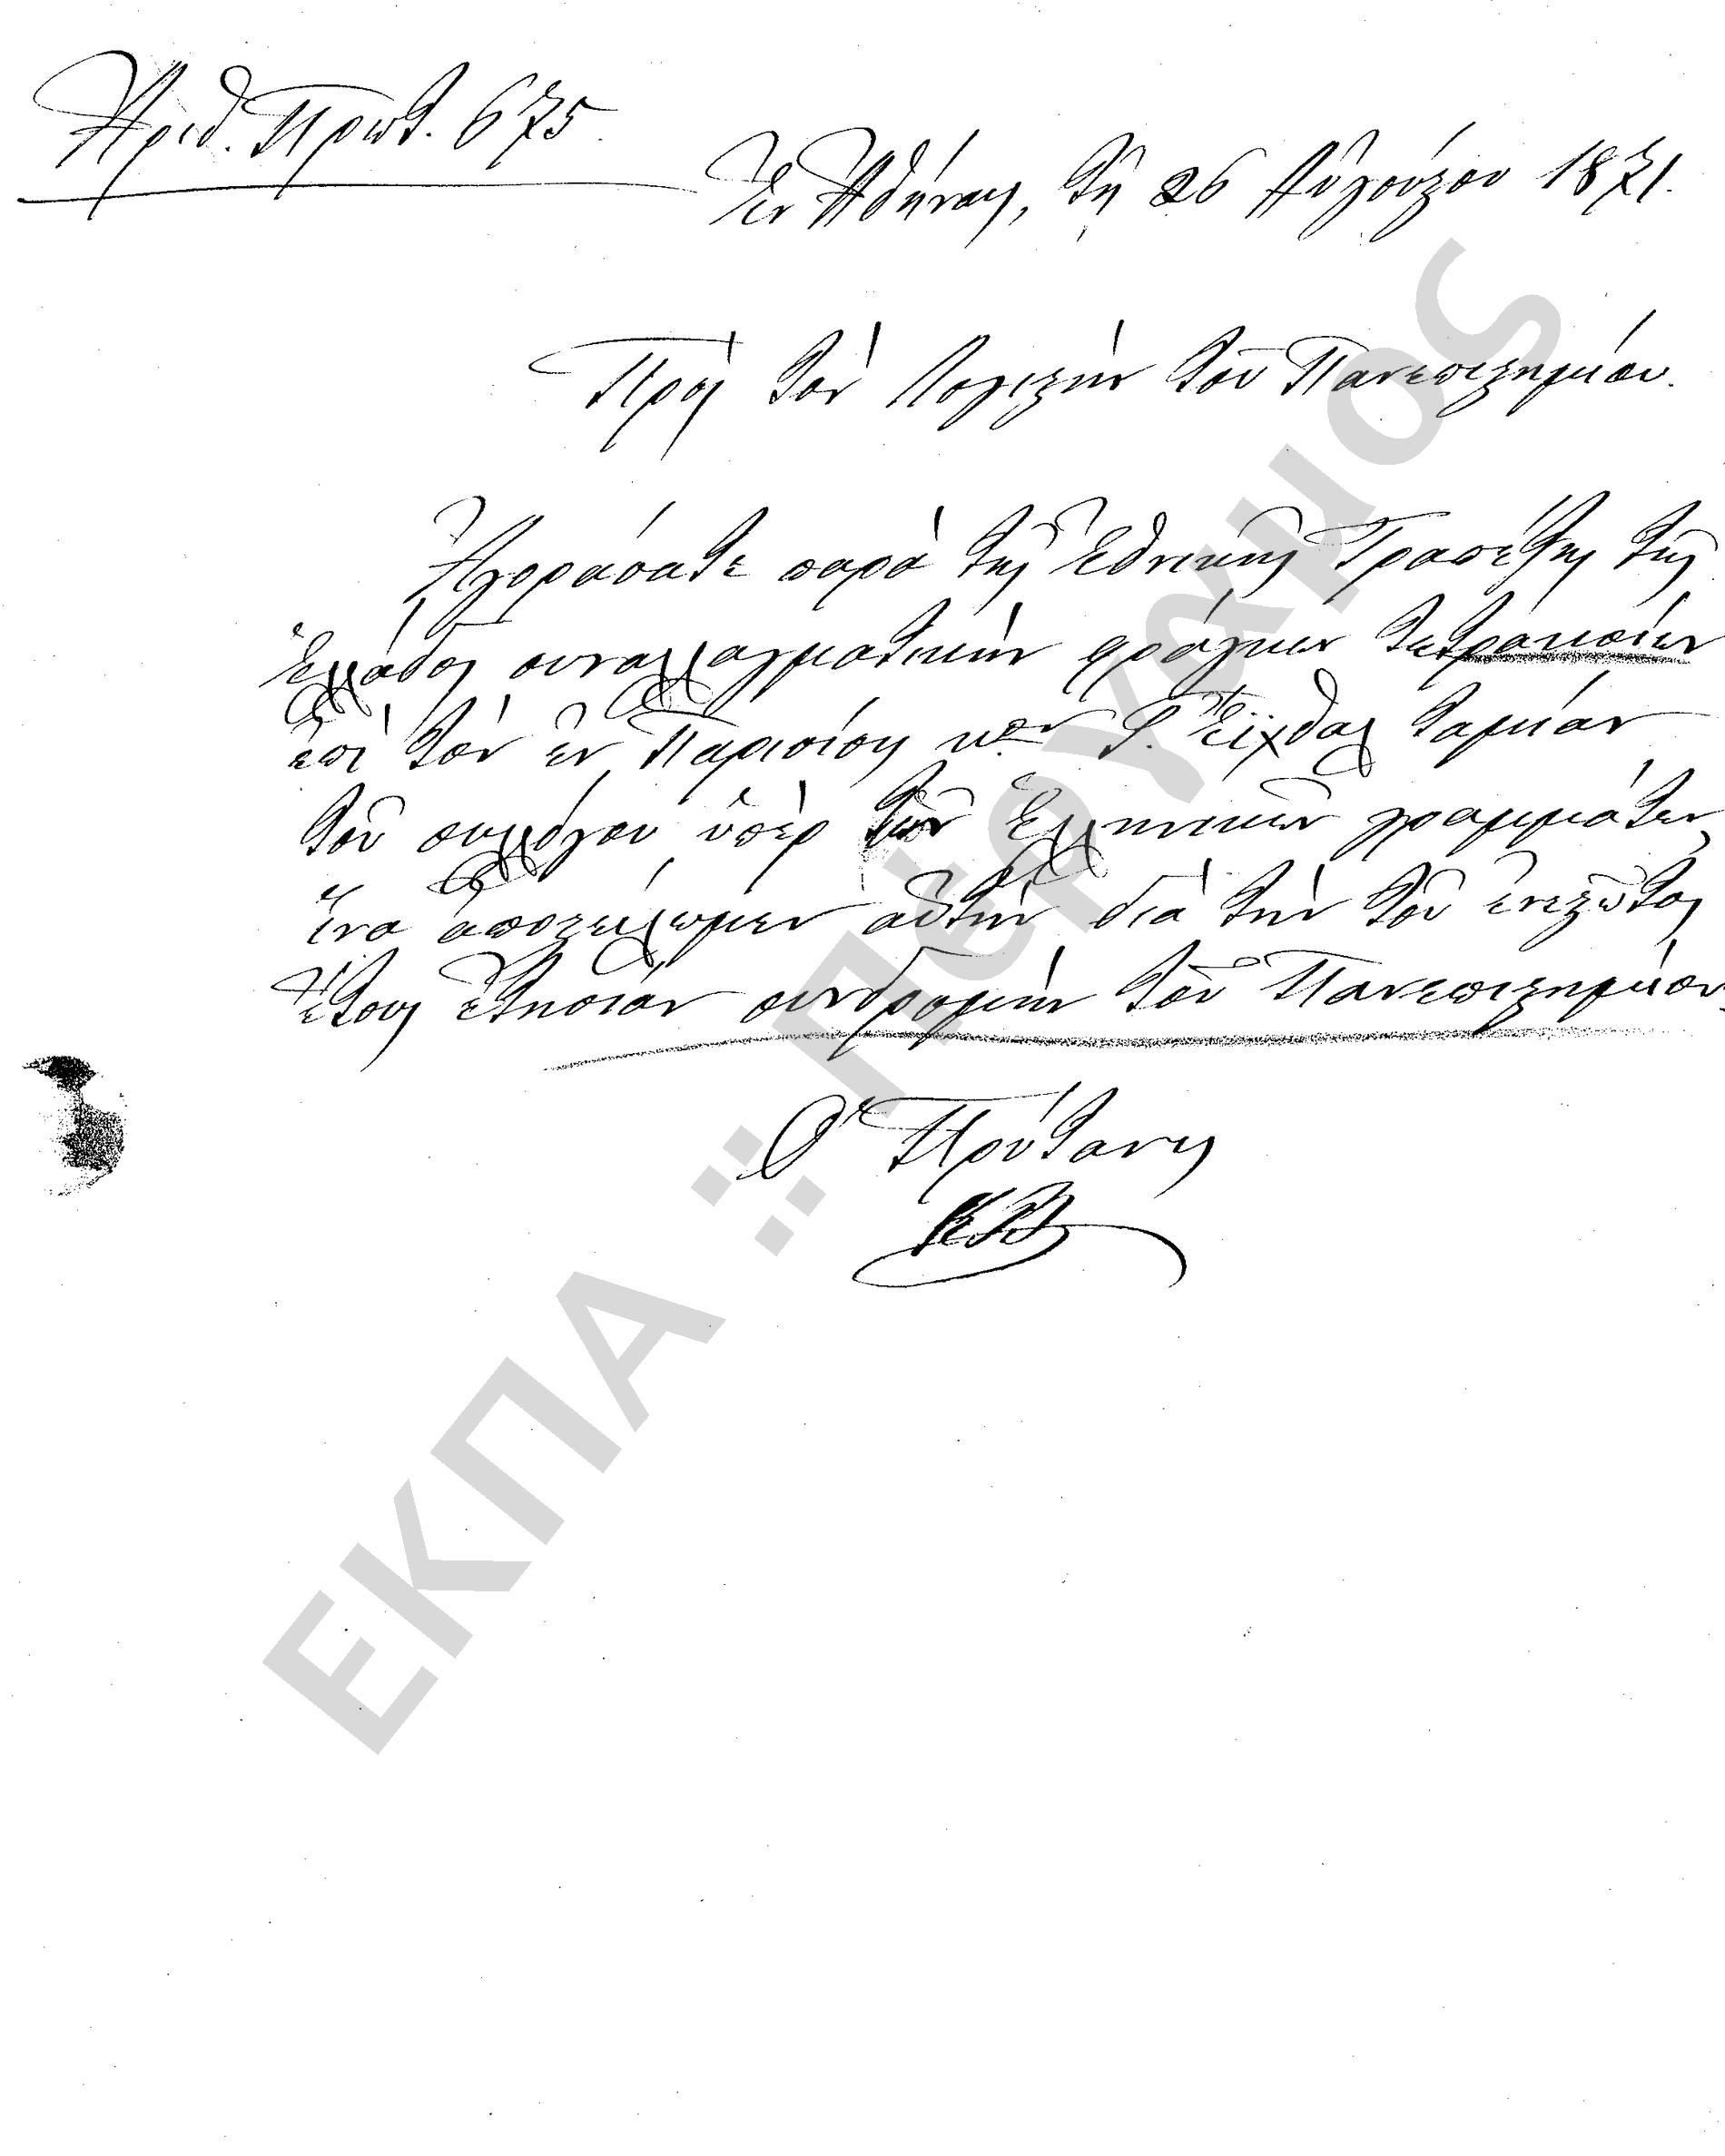 Ἀριθ. Πρωτ. 675
Ἐν Ἀθήναις, τῇ 26 Αὐγούστου 1871.
Πρὸς τὸν Λογιστὴν τοῦ Πανεπιστημίου.
Ἀγοράσατε παρὰ τῆς Ἐθνικῆς Τραπέζης τῆς
Ἑλλάδος συναλλαγματικὴν φράγκων τετρακοσίων
ἐπὶ τὸν ἐν Παρισίοις κον Γ. Ἐϊχθαλ ταμίαν
τοῦ συλλόγου ὑπὲρ τῶν Ἑλληνικῶν γραμμάτων,
ἵνα ἀποστείλωμεν αὐτὴν διὰ τὴν τοῦ ἐνεστῶτος
ἔτους ἐτησίαν συνδρομὴν τοῦ Πανεπιστημίου.
Ὁ Πρύτανις
ΕΚΠΑ :: Πέργαμος